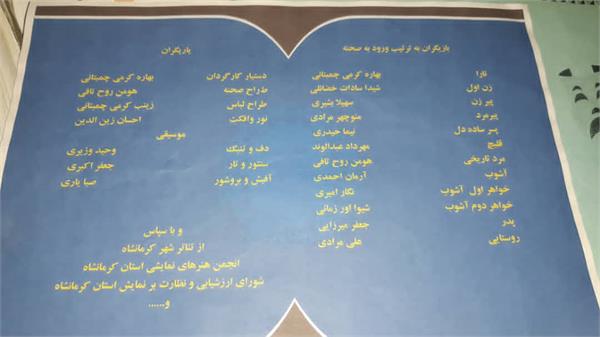 بازیگران به ترتیب ورود به صحنه
تارا بهاره کرمی چمبتانی
زن اول شیدا سادات خضائلی
پیر زن سهیلا بشیری
پیرمرد منوچهر مرادی
پسر ساده دل نیما حیدری
قلیچ مهرداد عبدالوند
مرد تاریخی هومن روح تافی
آشوب آرمان احمدی
خواهر اول آشوب نگار امیری
خواهر دوم آشوب شیوا اور زمانی
پدر جعفر میرزایی
روستایی علی مرادی
یاریگران
دستیار کارگردان بهاره کرمی چمبتانی
طراح صحنه هومن روح تافی
طراح لباس زینب کرمی چمبتانی
نور وافکت احسان زین الدین
موسیقی
دف و تنبک وحید وزیری
سنتور و تار جعفر اکبری
آفیش و بروشور صبا یاری
و با سپاس
از تئاتر شهر کرمانشاه
انجمن هنرهای نمایشی استان کرمانشاه
شورای ارزشیابی و نظارت بر نمایش استان کرمانشاه
و......